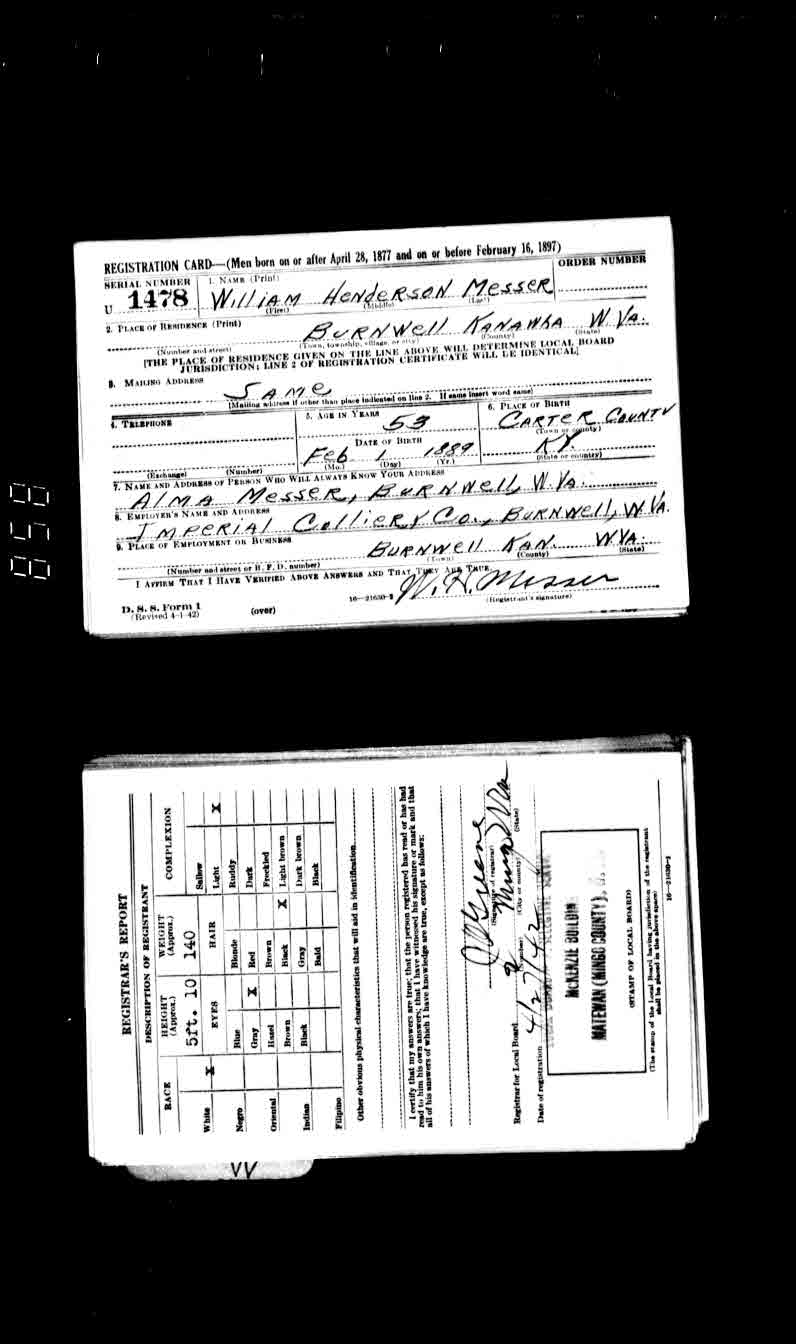 REGISTRATION CARD—(Men born on or after April 28, 1877 and on or before February 16, 1897)
SERIAL NUMBER
1. NAME (Print)
ORDER NUMBER
U 1478
William Henderson Messer
(First) (Middle) (Last)
2. PLACE OF RESIDENCE (Print)
Burnwell Kanawha W.Va.
(Number and street) (Town, township, village, or city) (County) (State)
[THE PLACE OF RESIDENCE GIVEN ON THE LINE ABOVE WILL DETERMINE LOCAL BOARD
JURISDICTION; LINE 2 OF REGISTRATION CERTIFICATE WILL BE IDENTICAL]
3. MAILING ADDRESS
Same
[Mailing address if other than place indicated on line 2. If same insert word same]
4. TELEPHONE
5. AGE IN YEARS
53
6. PLACE OF BIRTH
Carter County
(Town or county)
DATE OF BIRTH
Feb 1 1889
Ky.
(Exchange) (Number)
(Mo.) (Day) (Yr.)
(State or country)
7. NAME AND ADDRESS OF PERSON WHO WILL ALWAYS KNOW YOUR ADDRESS
Alma Messer, Burnwell, W.Va.
8. EMPLOYER'S NAME AND ADDRESS
Imperial Colliery Co., Burnwell, W.Va.
9. PLACE OF EMPLOYMENT OR BUSINESS
Burnwell Kan. W.Va.
(Number and street or R. F. D. number) (Town) (County) (State)
I AFFIRM THAT I HAVE VERIFIED ABOVE ANSWERS AND THAT THEY ARE TRUE.
W.H. Messer
D. S. S. Form 1
(Revised 4-1-42)
(over)
16—21630-2
(Registrant's signature)
858
REGISTRAR'S REPORT
DESCRIPTION OF REGISTRANT
RACE
HEIGHT
(Approx.)
WEIGHT
(Approx.)
COMPLEXION
5ft. 10
140
Sallow
White X
EYES
HAIR
Light X
Negro
Blue
Blonde
Ruddy
Gray X
Red
Dark
Oriental
Hazel
Brown
Freckled
Brown
Black X
Light brown
Indian
Black
Gray
Dark brown
Bald
Black
Filipino
Other obvious physical characteristics that will aid in identification
I certify that my answers are true; that the person registered has read or has had
read to him his own answers; that I have witnessed his signature or mark and that
all of his answers of which I have knowledge are true, except as follows:
(Signature of registrar)
Registrar for Local Board 2 Mingo W Va
(Number) (City or county) (State)
Date of registration 4/27/42
MCKENZIE BUILDIN
MATEWAN (MINGO COUNTY),
(STAMP OF LOCAL BOARD)
(The stamp of the Local Board having jurisdiction of the registrant
shall be placed in the above space)
16—21630-1
W